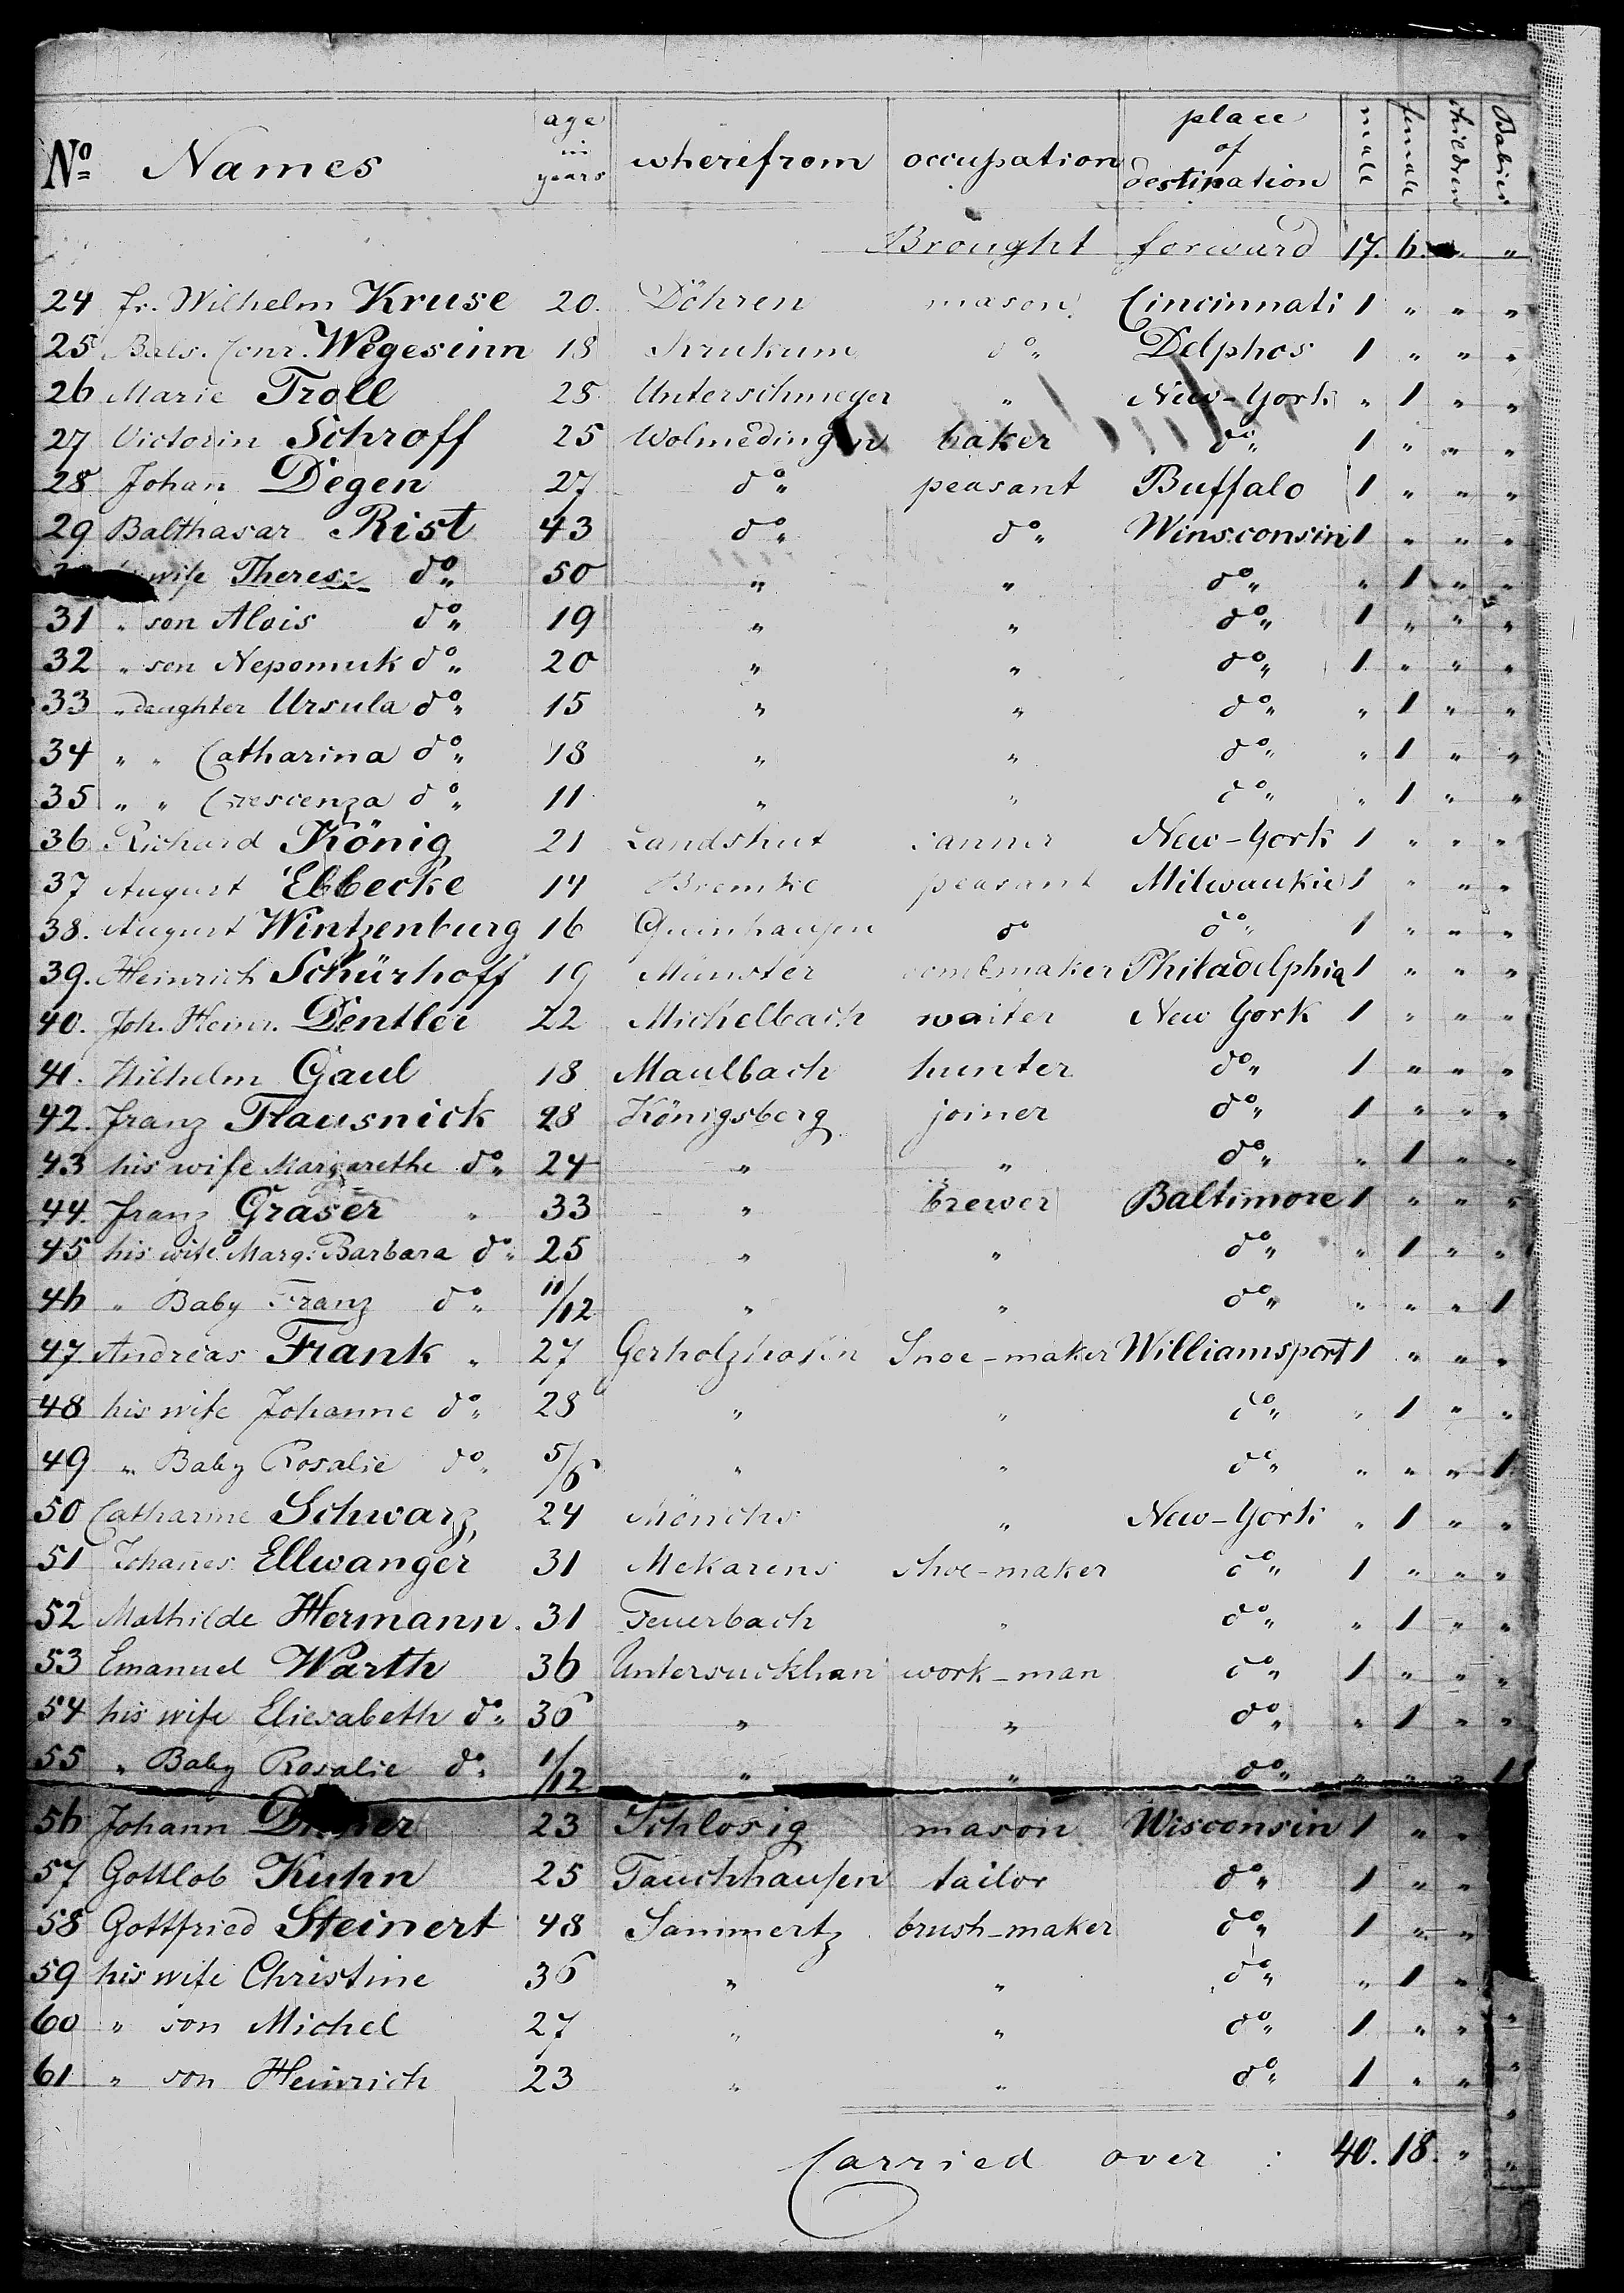 No Names age in years wherefrom occupation place of destination male female children Babies
Brought forward 17. 6. " "
24 fr. Wilhelm Kruse 20. Döhren mason Cincinnati 1 " " "
25 Conr. Wegesinn 18 Krukum do " Delphos 1 " " "
26 Marie Troll 28 Unterschmeyer " New-York " 1 " "
27 Victorin Schroff 25 Wolmedingen baker do " 1 " " "
28 Johan Degen 27 do " peasant Buffalo 1 " " "
29 Balthasar Rist 43 do " do " Winsconsin 1 " " "
wife Therese do " 50 " " do " " 1 " "
31 " son Alois do " 19 " " do " 1 " " "
32 " son Nepomuk do " 20 " " do " 1 " " "
33 " daughter Ursula do " 15 " " do " " 1 " "
34 " " Catharina do " 18 " " do " " 1 " "
35 " " Crescenza do " 11 " " do " " 1 " "
36 Richard König 21 Landshut New-York 1 " " "
37 August Ebbecke 14 Bremke peasant Milwaukie 1 " " "
38. August Wintzenburg 16 do do " 1 " " "
39. Heinrich Schürhoff 19 Münster combmaker Philadelphia 1 " " "
40. Joh. Heinr. Dentler 22 Michelbach waiter New York 1 " " "
41. Wilhelm Gaul 18 Maulbach hunter do " 1 " " "
42. Franz Flausnick 28 Königsberg joiner do " 1 " " "
43 his wife Margarethe do " 24 " " do " " 1 " "
44. Franz Graser " 33 " brewer Baltimore 1 " " "
45 his wife Marg. Barbara do " 25 " " do " " 1 " "
46 " Baby Franz do " 11/12 " " do " " " " 1
47 Andreas Frank " 27 Gerholzhofen Shoe-maker Williamsport 1 " " "
48 his wife Johanne do " 28 " " do " " 1 " "
49 " Baby Rosalie do " 5/6 " " do " " " " 1
50 Catharine Schwarz 24 Mönchs " New-York " 1 " "
51 Johanes Ellwanger 31 Mekarens Shoe-maker do " 1 " " "
52 Mathilde Hermann. 31 Feuerbach " do " " 1 " "
53 Emanuel Warth 36 work-man do " 1 " " "
54 his wife Eliesabeth do " 36 " " do " " 1 " "
55 " Baby Rosalie do " 1/12 " " do " " " " 1
56 Johann 23 Schlosig mason Wisconsin 1 " "
57 Gottlob Kuhn 25 Tauchhausen tailor do " 1 " "
58 Gottfried Steinert 48 Sammertz brush-maker do " 1 " "
59 his wife Christine 36 " " do " " 1 "
60 " son Michel 27 " " do " 1 " " "
61 " son Heinrich 23 " " do " 1 " " "
Carried over : 40. 18. " "